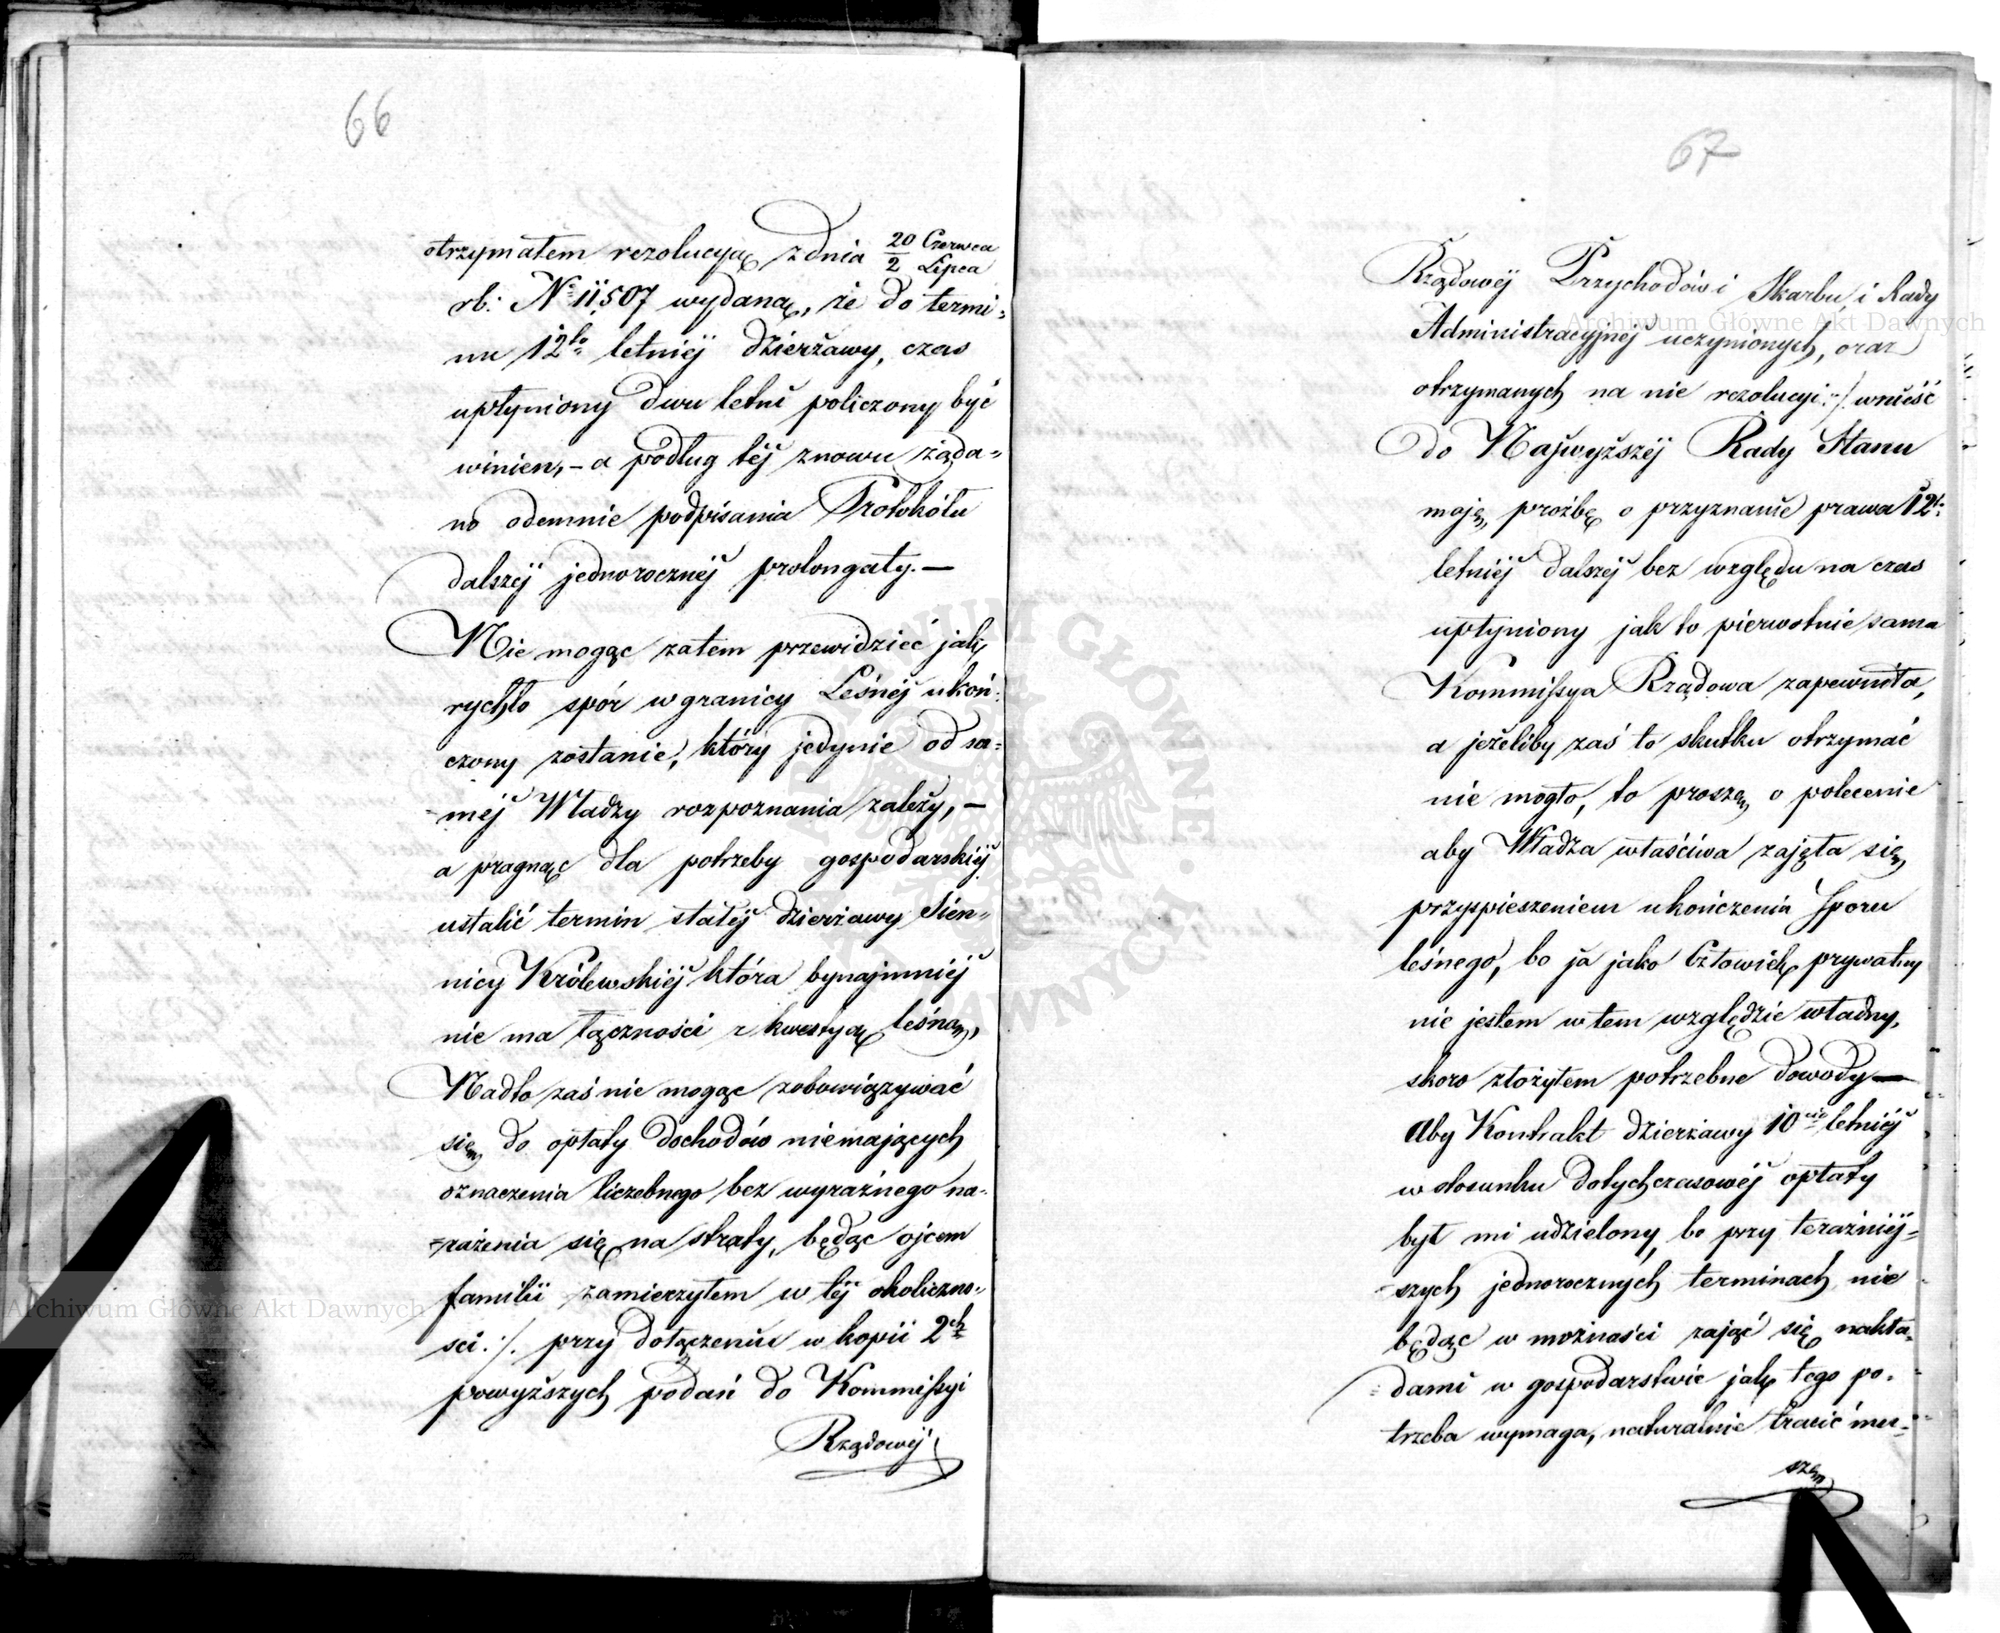 66
otrzymałem rezolucyą z dnia 20 Czerwca / 2 Lipca
rb: № 11,507 wydaną, że do termi-
nu 12to letniéj dzierżawy, czas
upłyniony dwu letni policzony być
winien, – a podług téj znowu żąda-
no odemnie podpisania Protokółu
dalszéj jednorocznéj prolongaty. –
Nie mogąc zatem przewidzieć jak
rychło spór w granicy Leśnéj ukoń-
czony zostanie, który jedynie od sa-
méj Władzy rozpoznania zależy, –
a pragnąc dla potrzeby gospodarskiéj
ustalić termin stałéj dzierżawy Sien-
nicy Królewskiéj która bynajmniéj
nie ma łączności z kwestyą leśną,
Nadto zaś nie mogąc zobowiązywać
się do opłaty dochodów niemających
oznaczenia liczebnego bez wyraźnego na-
rażenia się na straty, będąc ojcem
familii zamierzyłem w téj okoliczno-
sci :/. przy dołączeniu w kopii 2ch
powyższych podań do Kommissyi
Rządowéj
67
Rządowéj Przychodów i Skarbu i Rady
Administracyjnéj uczynionych, oraz
otrzymanych na nie rezolucyi :/. wnieść
do Najwyższéj Rady Stanu
moją prożbę o przyznanie prawa 12to
letniéj dalszéj bez względu na czas
upłyniony jak to pierwotnie sama
Kommissya Rządowa zapewniła,
a jeżeliby zaś to skutku otrzymać
nie mogło, to proszę o polecenie
aby Władza właściwa zajęła się
przyspieszeniem ukończenia Sporu
leśnego, bo ja jako Człowiek prywatny
nie jestem w tem względzie władny,
skoro złożyłem potrzebne dowody –
Aby Kontrakt dzierżawy 10cio letniéj
w stosunku dotychczasowéj opłaty
był mi udzielony, bo przy teraźniéj-
szych jednorocznych terminach nie
będąc w możności zająć się nakła-
dami w gospodarstwie jak tego po-
trzeba wymaga, naturalnie tracić mu-
szę
Archiwum Główne Akt Dawnych
Archiwum Główne Akt Dawnych
ARCHIWUM GŁÓWNE AKT DAWNYCH